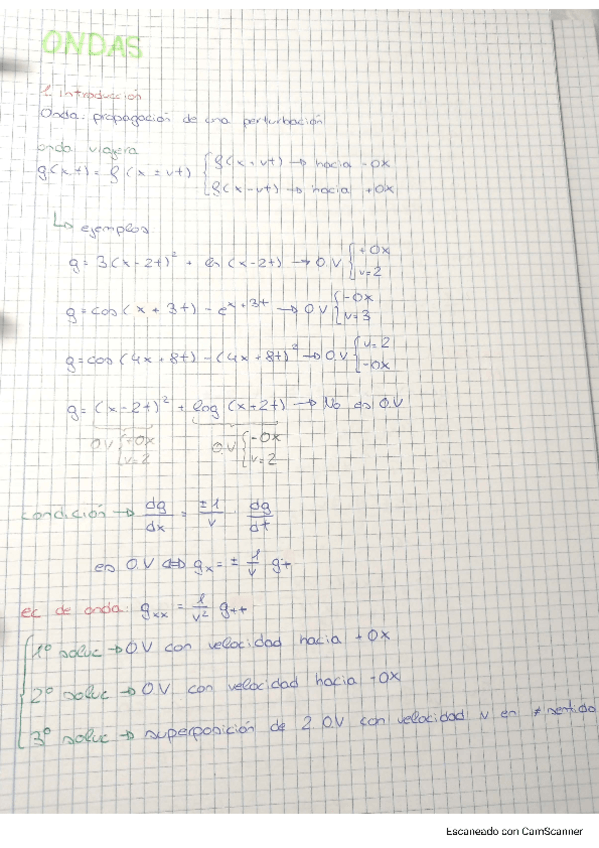 ONDAS
1. introducción
Onda: propagación de una perturbación
onda viajera
g(x,t) = g(x ± vt) { g(x+vt) → hacia -OX
g(x-vt) → hacia +OX
↳ ejemplos
g = 3(x-2t)² + ln(x-2t) → O.V { +OX
v=2
g = cos(x+3t) - e^x+3t → O.V { -OX
v=3
g = cos(4x+8t) - (4x+8t)² → O.V { v=2
-OX
g = (x-2t)² + log(x+2t) → No es O.V
O.V { +OX   O.V { -OX
v=2   v=2
condición → dg/dx = ±1/v · dg/dt
es O.V ⇔ gx = ± 1/v gt
ec de onda: gxx = 1/v² gtt
1º soluc → O.V con velocidad hacia +OX
2º soluc → O.V con velocidad hacia -OX
3º soluc → superposición de 2 O.V con velocidad v en ≠ sentido
Escaneado con CamScanner